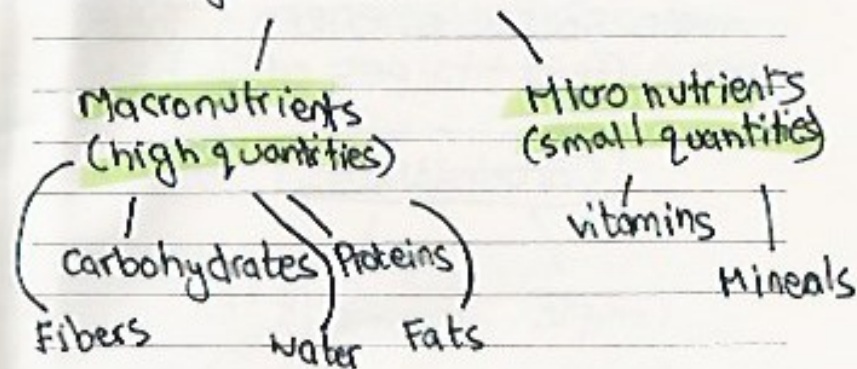 Macronutrients
(high quantities)
Micro nutrients
(small quantities)
Carbohydrates
Proteins
vitamins
Minerals
Fibers
Water
Fats